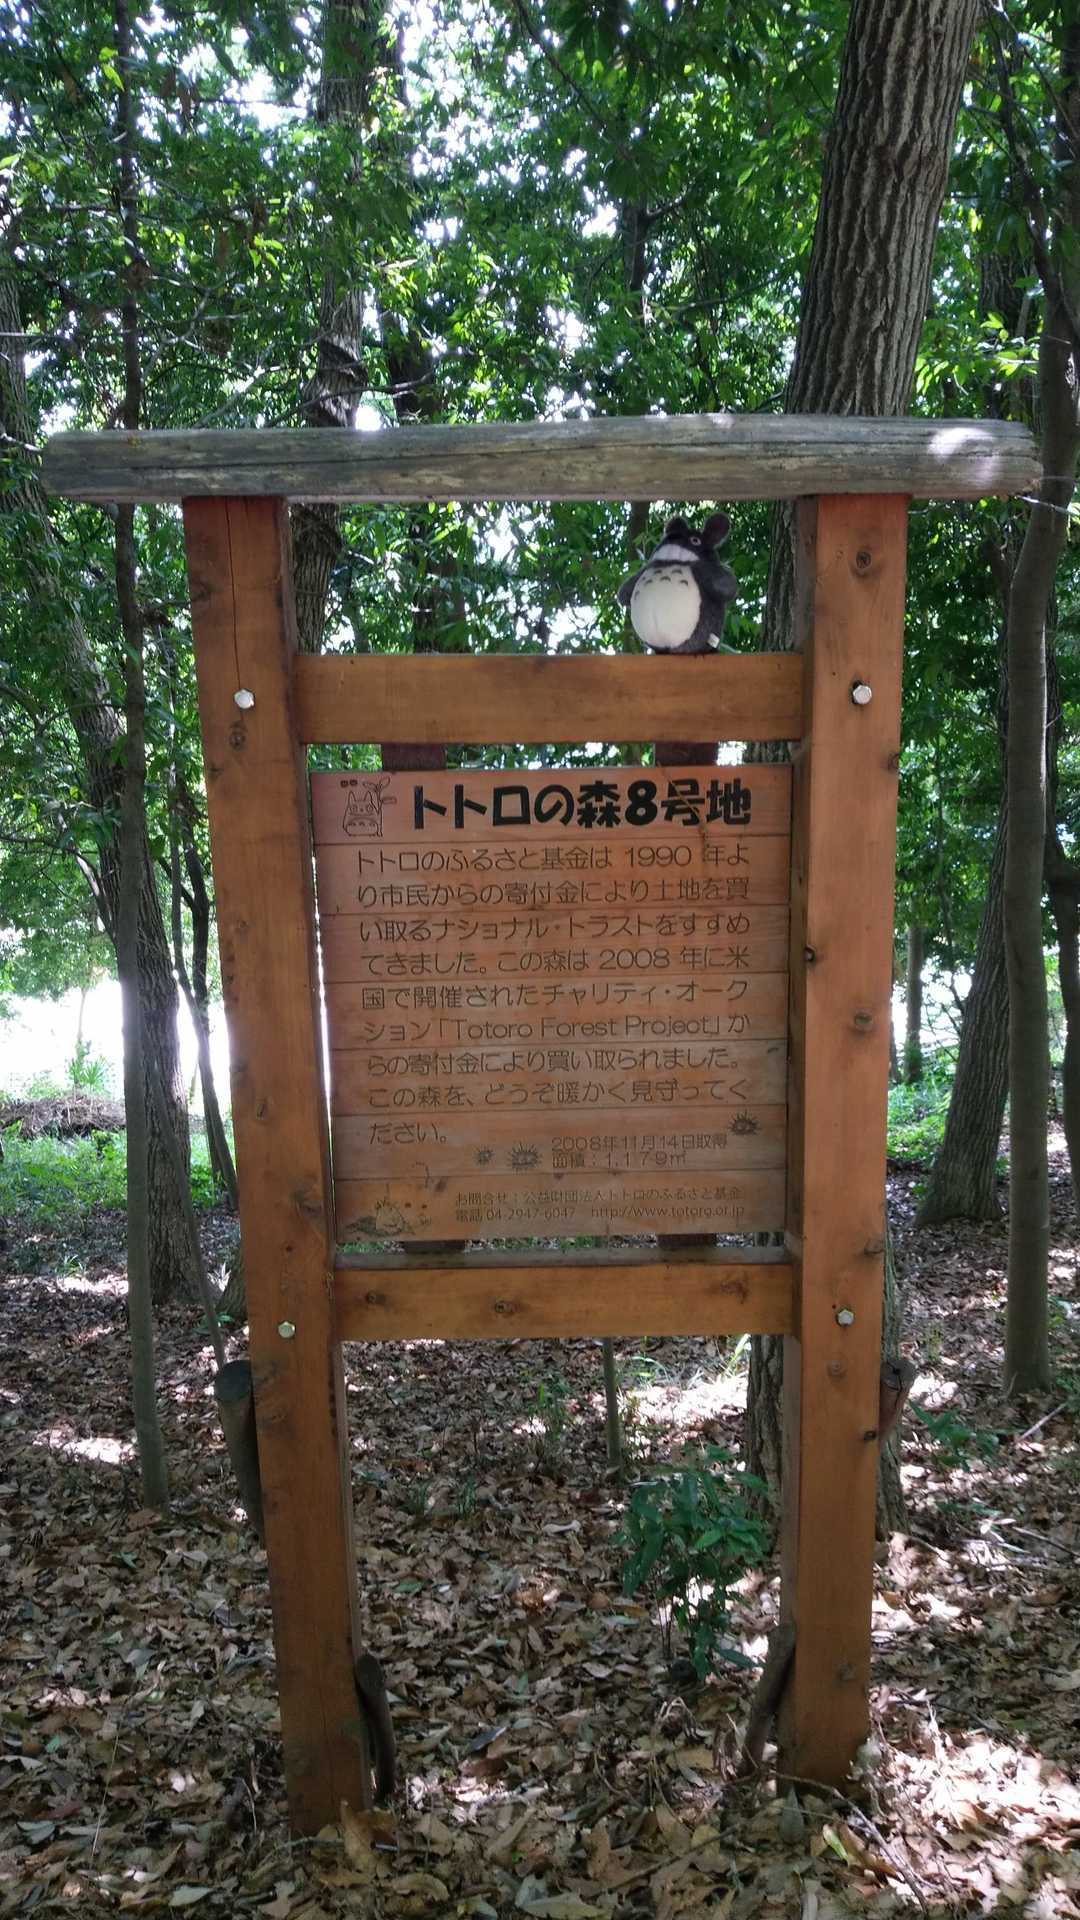 トトロの森8号地
トトロのふるさと基金は 1990 年よ
り市民からの寄付金により土地を買
い取るナショナル・トラストをすすめ
てきました。この森は 2008 年に米
国で開催されたチャリティ・オーク
ション「Totoro Forest Project」か
らの寄付金により買い取られました。
この森を、どうぞ暖かく見守ってく
ださい。
2008年11月14日取得
面積：1,179㎡
お問合せ：公益財団法人トトロのふるさと基金
電話 04-2947-6047　http://www.totoro.or.jp